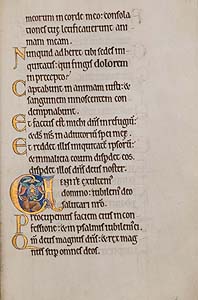 morum in corde meo: consola
tiones tuę letificauerunt ani
mam meam.
Nunquid adheret tibi sedes ini
quitatis: qui fingis dolorem
in precepto?
Captabunt in animam iusti: &
sanguinem innocentem con
dempnabunt.
Et factus est michi dñs in refugiū:
& dš mš in adiutoriū spei meę.
Et reddet illis iniquitatē ipsorū:
& in malicia eorum disperdet eos.
disperdet illos dñs deus noster.
Uenite exultem
domino: iubilem deo
salutari nr̄o.
Preoccupemus faciem eius in con
fessione: & in psalmis iubilem ei.
Qm̄ deus magnus dñs: & rex mag
nus sup omnes deos.